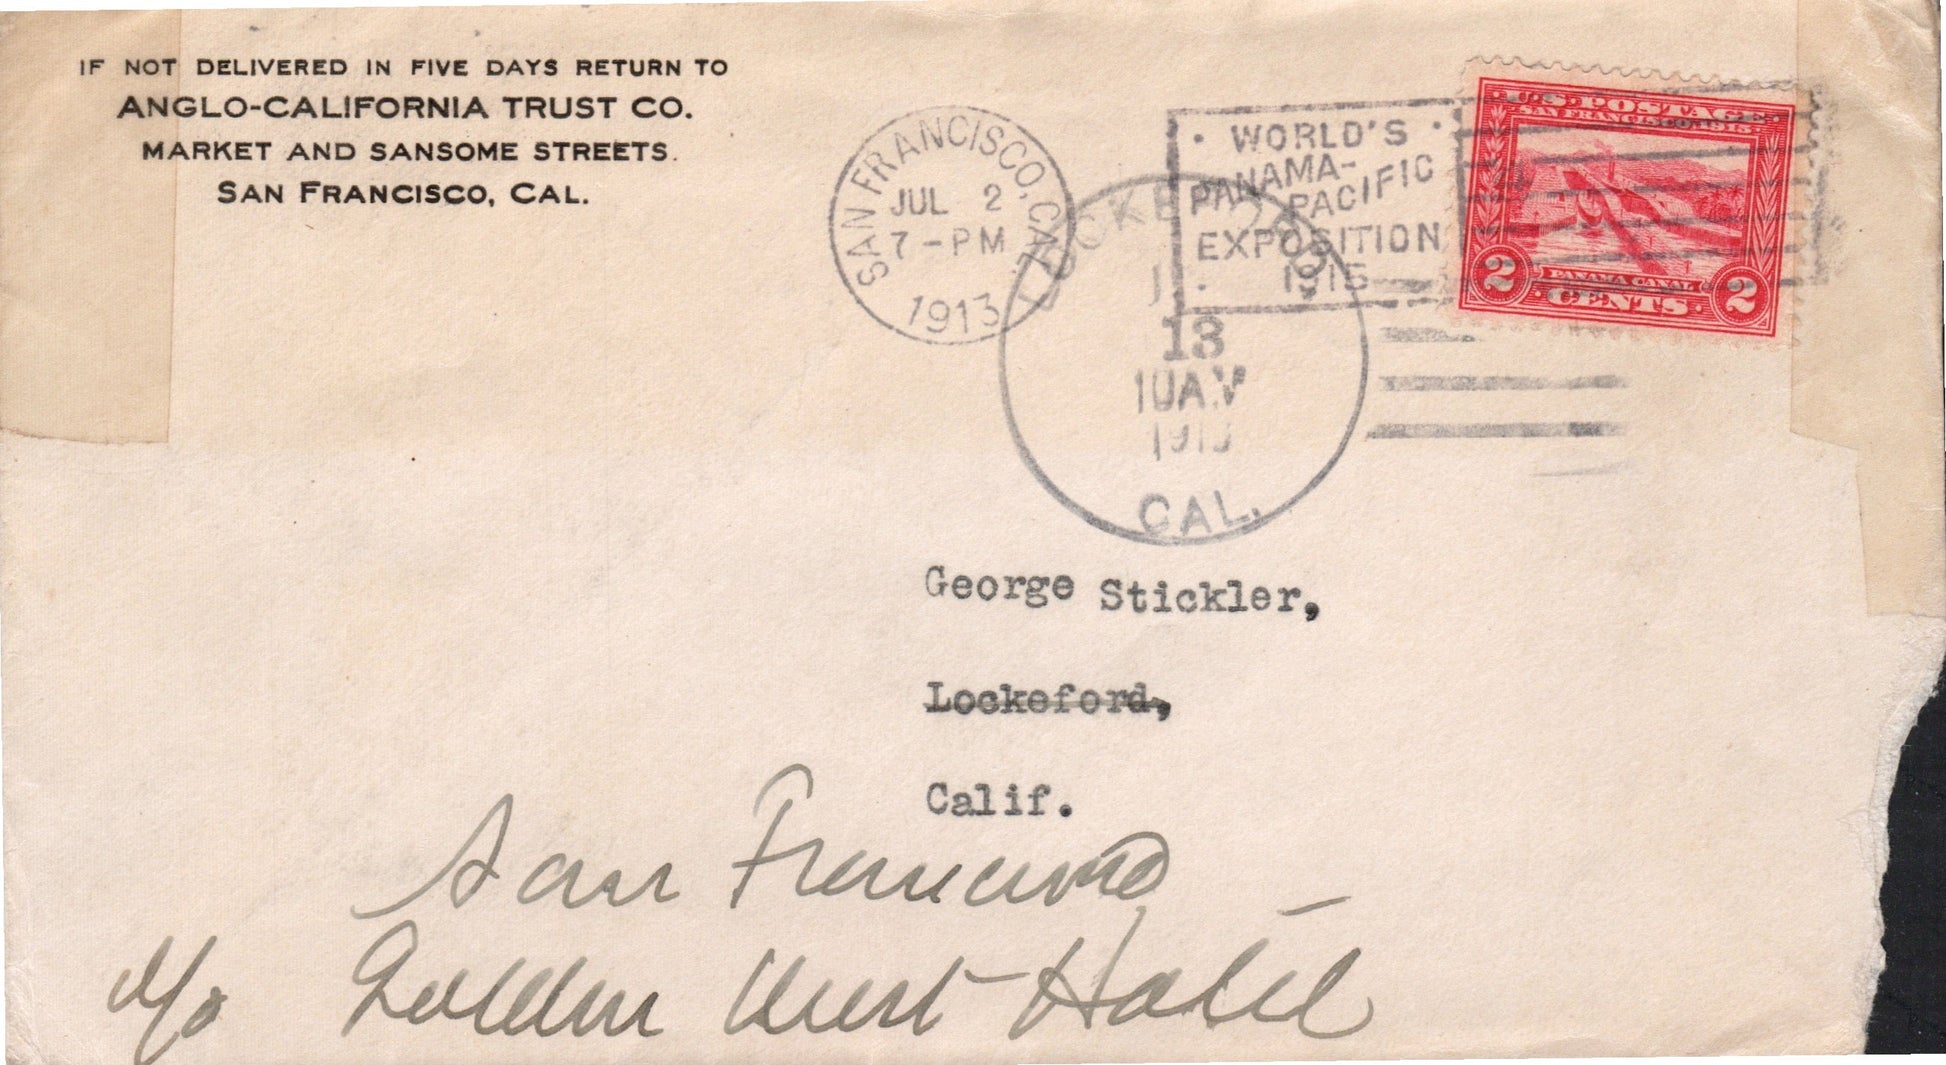 IF NOT DELIVERED IN FIVE DAYS RETURN TO
ANGLO-CALIFORNIA TRUST CO.
MARKET AND SANSOME STREETS.
SAN FRANCISCO, CAL.
SAN FRANCISCO, CAL.
JUL 2
7-PM
1913
WORLD'S
PANAMA-
PACIFIC
EXPOSITION
1915
U.S. POSTAGE
SAN FRANCISCO, 1915
PANAMA CANAL
2 CENTS 2
13
10AM
CAL.
George Stickler,
Lockeford,
Calif.
San Francisco
c/o Golden West Hotel